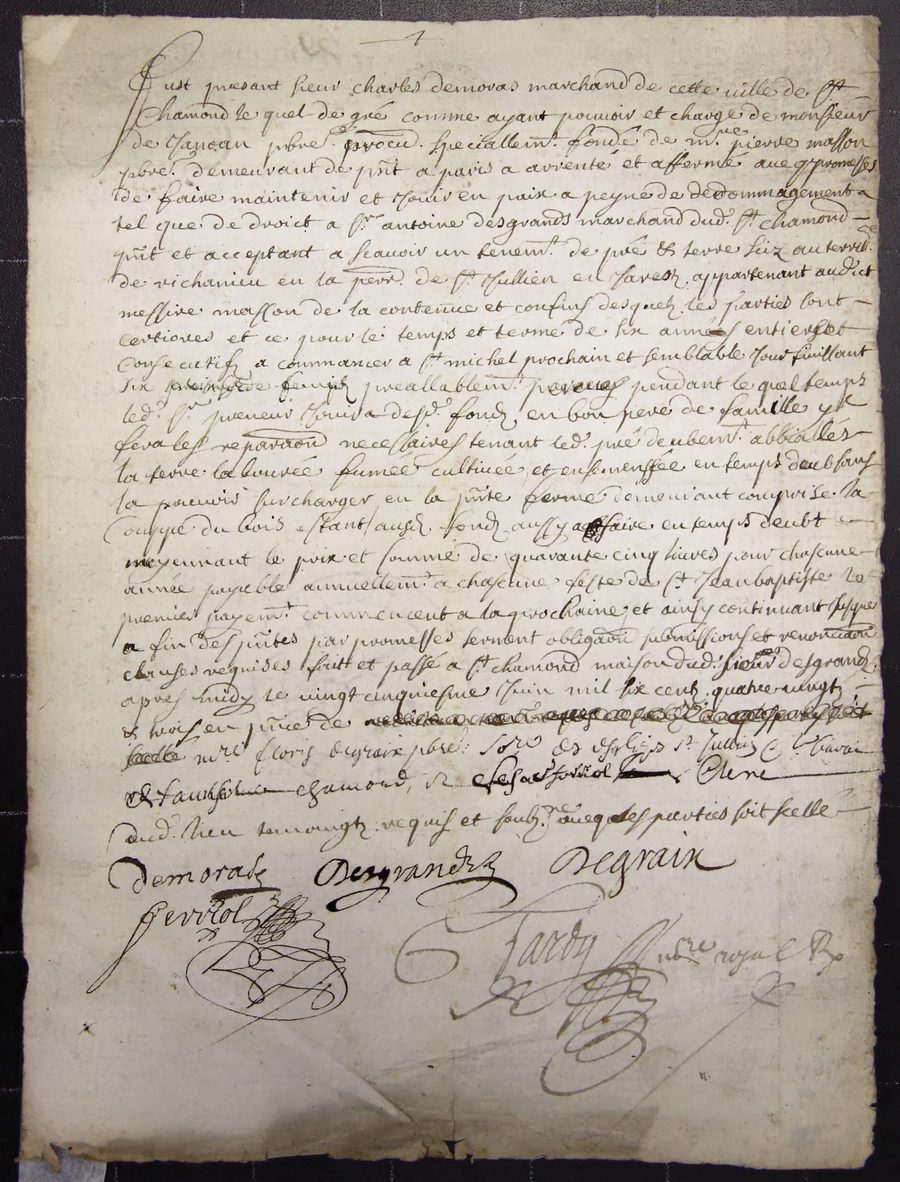 1
Fust presant sieur charles demoras marchand de cette ville de St
Chamond le quel de gré comme ayant pouvoir et charge de monsieur
de pbre procu. speciallemt. fondé de mre. pierre masson
pbre. demeurant de pnt a paris a arrente et affermé aveq promesses
de faire maintenir et Jouir en paix a peyne de dedommagement
tel que de droict a Sr. antoine desgrands marchand dud. St chamond
pnt et acceptant a scavoir un tenemt. de pré & terre siz au terrre.
de richanieu en la parr. de St Jullien en Jarest, appartenant audict
messire masson de la contenue et confins desquelz les parties sont
certiores et ce pour le temps et terme de six années entieres et
Consecutifz a commancer a St michel prochain et semblable Jour finissant
six preallablemt. pendant le quel temps
led. Sr. preneur Jouira desd. fondz en bon pere de famille y
fera les reparaons necessaires tenant led. pré deubemt. abbialler
la terre labourée fumée cultivée et ensemenssée en temps deub sans
la pouvoir surcharger en la pnte ferme demeurant comprise la
couppe du bois estant ausd. fondz aussy a faire en temps deubt
moyennant le prix et somme de quarante cinq livres pour chascune
année payable annuellemt. a chascune feste de St Jean baptiste le
premier payemt. commencent a la prochaine et ainsy continuant Jusque
a fin des pntes par promesses serment obligaon submissions et renonciaon
clauses requises fait et passé a St chamond maison dud. sieur desgrands
apres midy le vingt cinquiesme Juin mil six centz quatre vingtz
& trois en pnce de
mre floris degraix pbre.
chamond, Clerc
dud. lieu temoingtz requis et soubz.nes aveq les parties soit scellé
Demoras
Desgrands
Degraix
Ferriol
Tardy
nore royal R